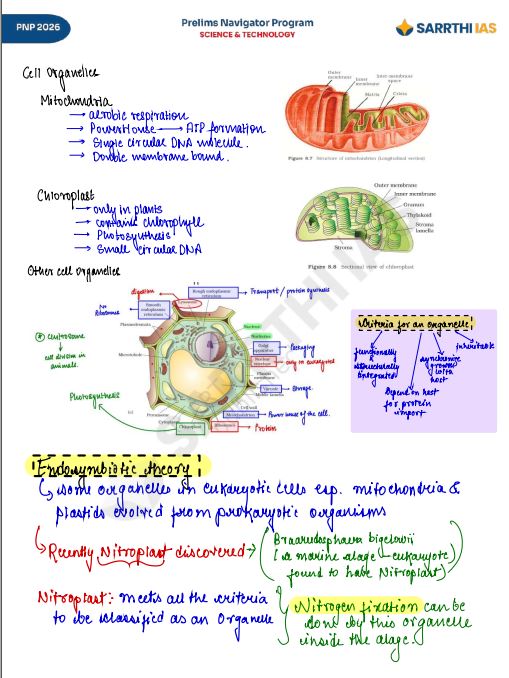 PNP 2026
Prelims Navigator Program
SCIENCE & TECHNOLOGY
SARRTHI IAS
Cell Organelles
Mitochondria
→ aerobic respiration
→ PowerHouse → ATP formation
→ Single circular DNA molecule.
→ Double membrane bound.
Outer membrane
Inner membrane
Inter-membrane space
Matrix
Crista
Figure 8.7 Structure of mitochondrion (Longitudinal section)
Chloroplast
→ only in plants
→ contains chlorophyll
→ Photosynthesis
→ Small circular DNA
Outer membrane
Inner membrane
Granum
Thylakoid
Stroma lamella
Stroma
Figure 8.8 Sectional view of chloroplast
Other cell organelles
digestion
Lysosome
Rough endoplasmic reticulum
→ Transport / protein synthesis
No Ribosomes
Smooth endoplasmic reticulum
Plasmodesmata
Nucleus
Nucleolus
Centrosome
↓
cell division in animals.
Microtubule
Golgi apparatus
Packaging
Nuclear envelope
only in eukaryotes
Plasma membrane
Vacuole
Storage.
Middle lamella
Cell wall
Photosynthesis
Peroxisome
Mitochondrion
Power house of the cell.
Cytoplasm
Chloroplast
Ribosomes
Protein
Criteria for an organelle
functionally & structurally integrated
synchronise growth with host
inheritable
Depend on host for protein import
SARRTHI IAS
Endosymbiotic theory
↳ some organelles in eukaryotic cells esp. mitochondria &
plastids evolved from prokaryotic organisms
↳ Recently Nitroplast discovered →
(Braarudosphaera bigelowii
(a marine alage - eukaryote)
found to have Nitroplast)
Nitroplast: meets all the criteria
to be classified as an Organelle
Nitrogen fixation can be
done by this organelle
inside the alage.